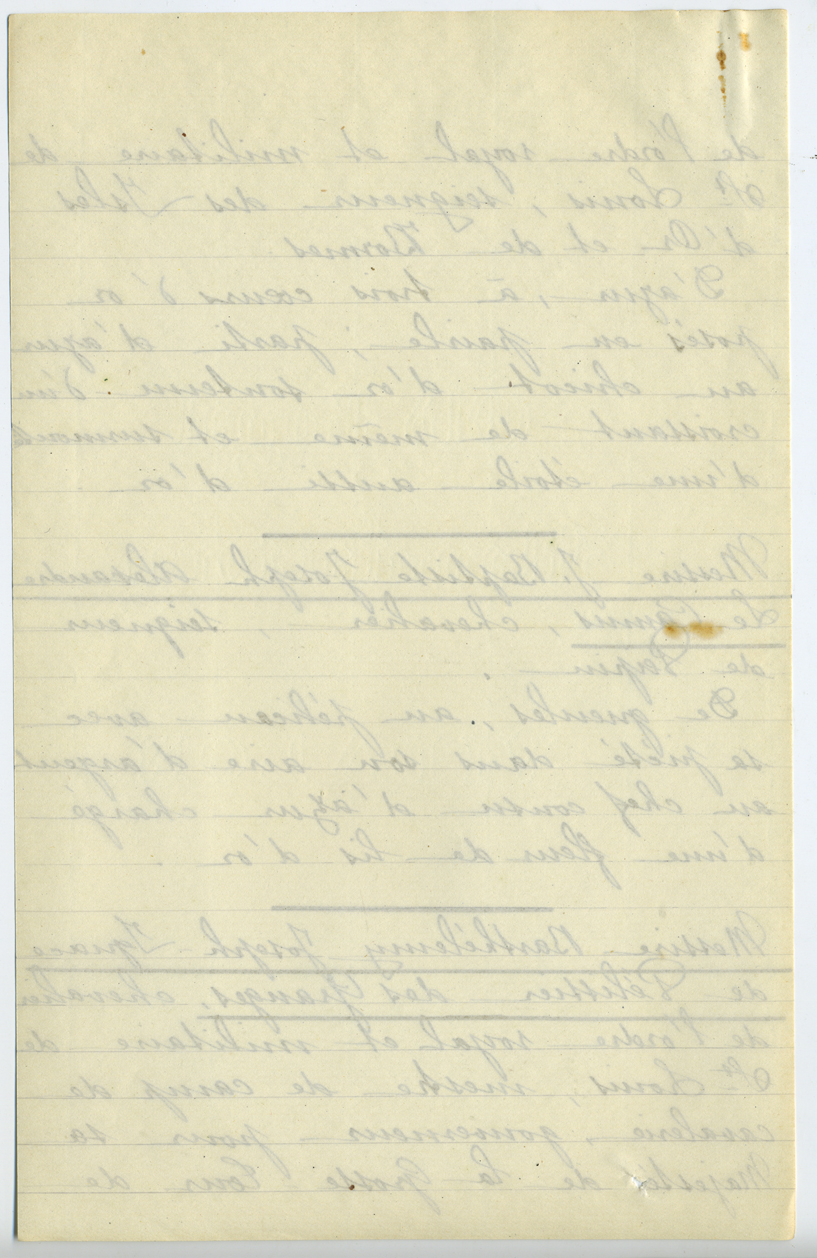 de l'ordre royal et militaire de
St Louis, seigneur des Isles
d'Or et de Bormes
D'azur, à trois cœurs d'or
posés en pairle; parti d'azur
au chicot d'or soutenu d'un
croissant de même et surmonté
d'une étoile aussi d'or
Messire J. Baptiste Joseph Alexandre
Le Camus, chevalier, seigneur
de
De gueules, au pélican avec
sa piété dans son aire d'argent
au chef cousu d'azur chargé
d'une fleur de lis d'or.
Messire Barthélemy Joseph Ignace
de Pélissier des Granges, chevalier
de l'ordre royal et militaire de
St Louis, mestre de camp de
cavalerie, gouverneur pour sa
Majesté de la Grosse Tour de